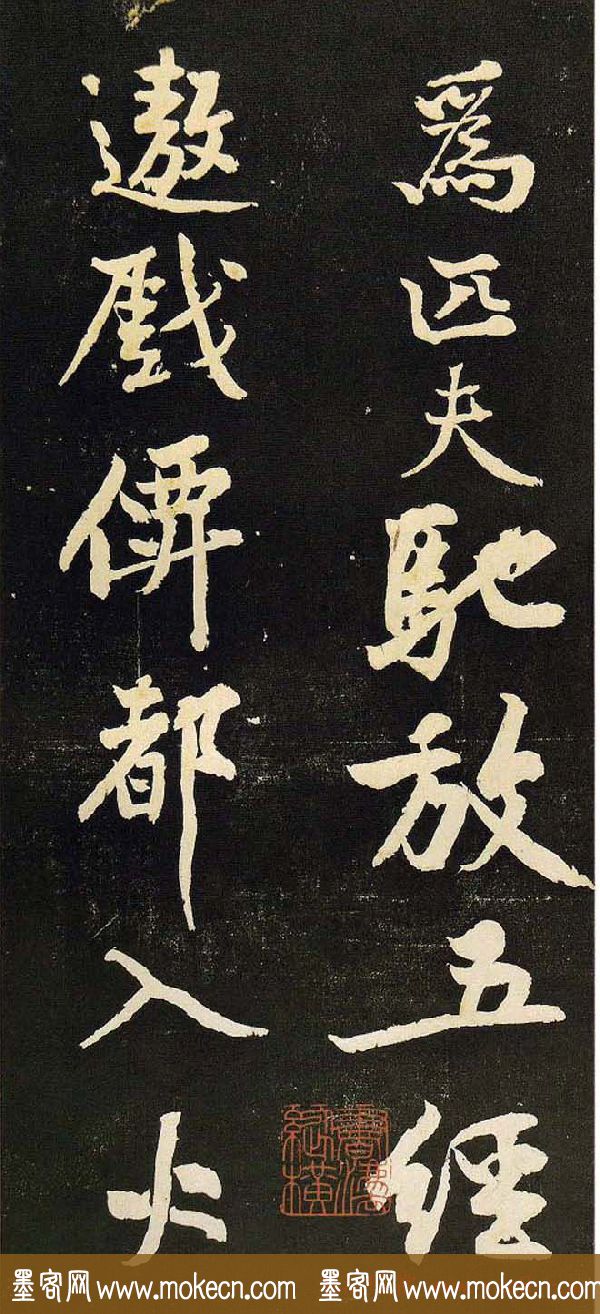 爲匹夫馳放五經
遨戲僊都入火
墨客网 www.mokecn.com 墨客网 www.mokecn.com